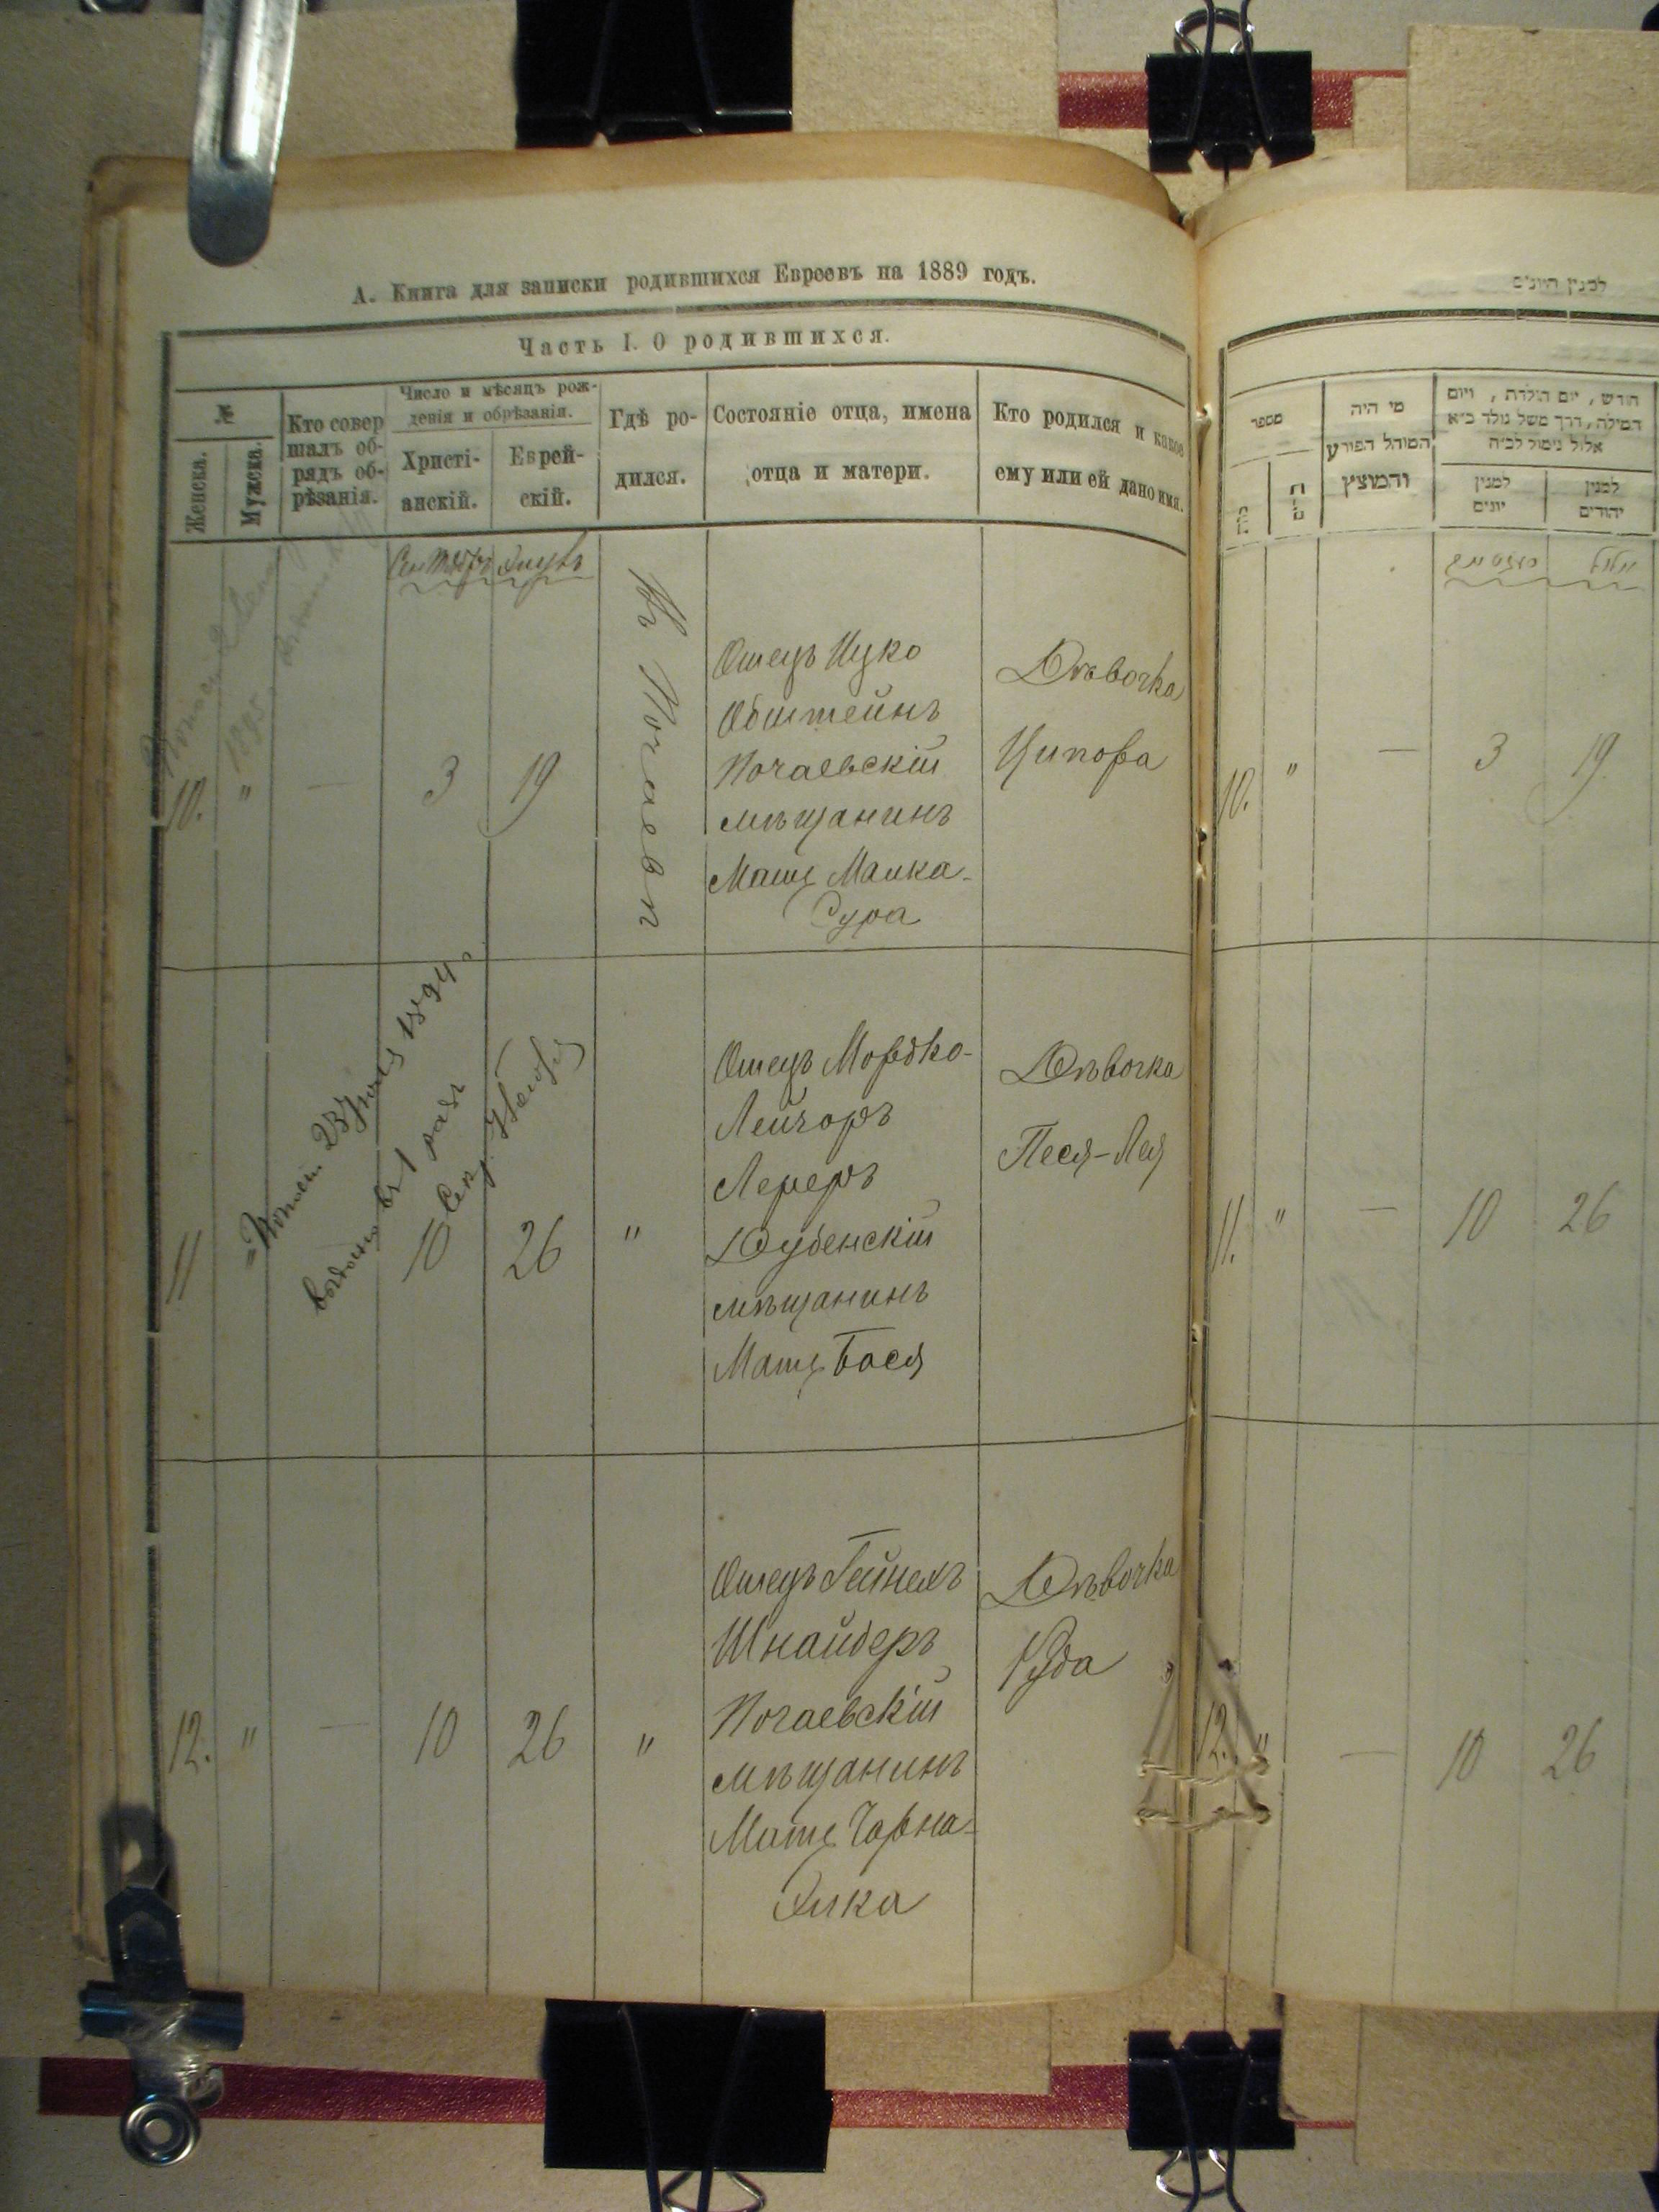 А. Книга для записки родившихся Евреевъ на 1889 годъ.
Часть I. О родившихся.
№
Женска.
Мужска.
Кто совер
шалъ об-
рядъ об-
рѣзанія.
Число и мѣсяцъ рож-
денія и обрѣзанія.
Христі-
анскій.
Еврей-
скій.
Гдѣ ро-
дился.
Состояніе отца, имена
отца и матери.
Кто родился и какое
ему или ей дано имя.
Сентябрь
10. " — 3 19
въ Почаевѣ
Отецъ Ицко
Обштейнъ
Почаевскій
мѣщанинъ
Мать Малка-
Сура
Дѣвочка
Ципора
11 10 26 "
выдано въ 1 разъ
Отецъ Мордко-
Лейзоръ
Лереръ
Дубенскій
мѣщанинъ
Мать Бася
Дѣвочка
Песя-Лея
12. " — 10 26 "
Отецъ Гейнехъ
Шнайдеръ
Почаевскій
мѣщанинъ
Мать Чарна-
Элка
Дѣвочка
למנין היונים
מספר
מי היה
המוהל הפורע
והמוצץ
חודש, יום הולדת, ויום
המילה, דרך משל נולד כ״א
אלול נימול לכ״ח
למנין
יונים
למנין
יהודים
אלול
10. " — 3 19
11. " — 10 26
12. " — 10 26